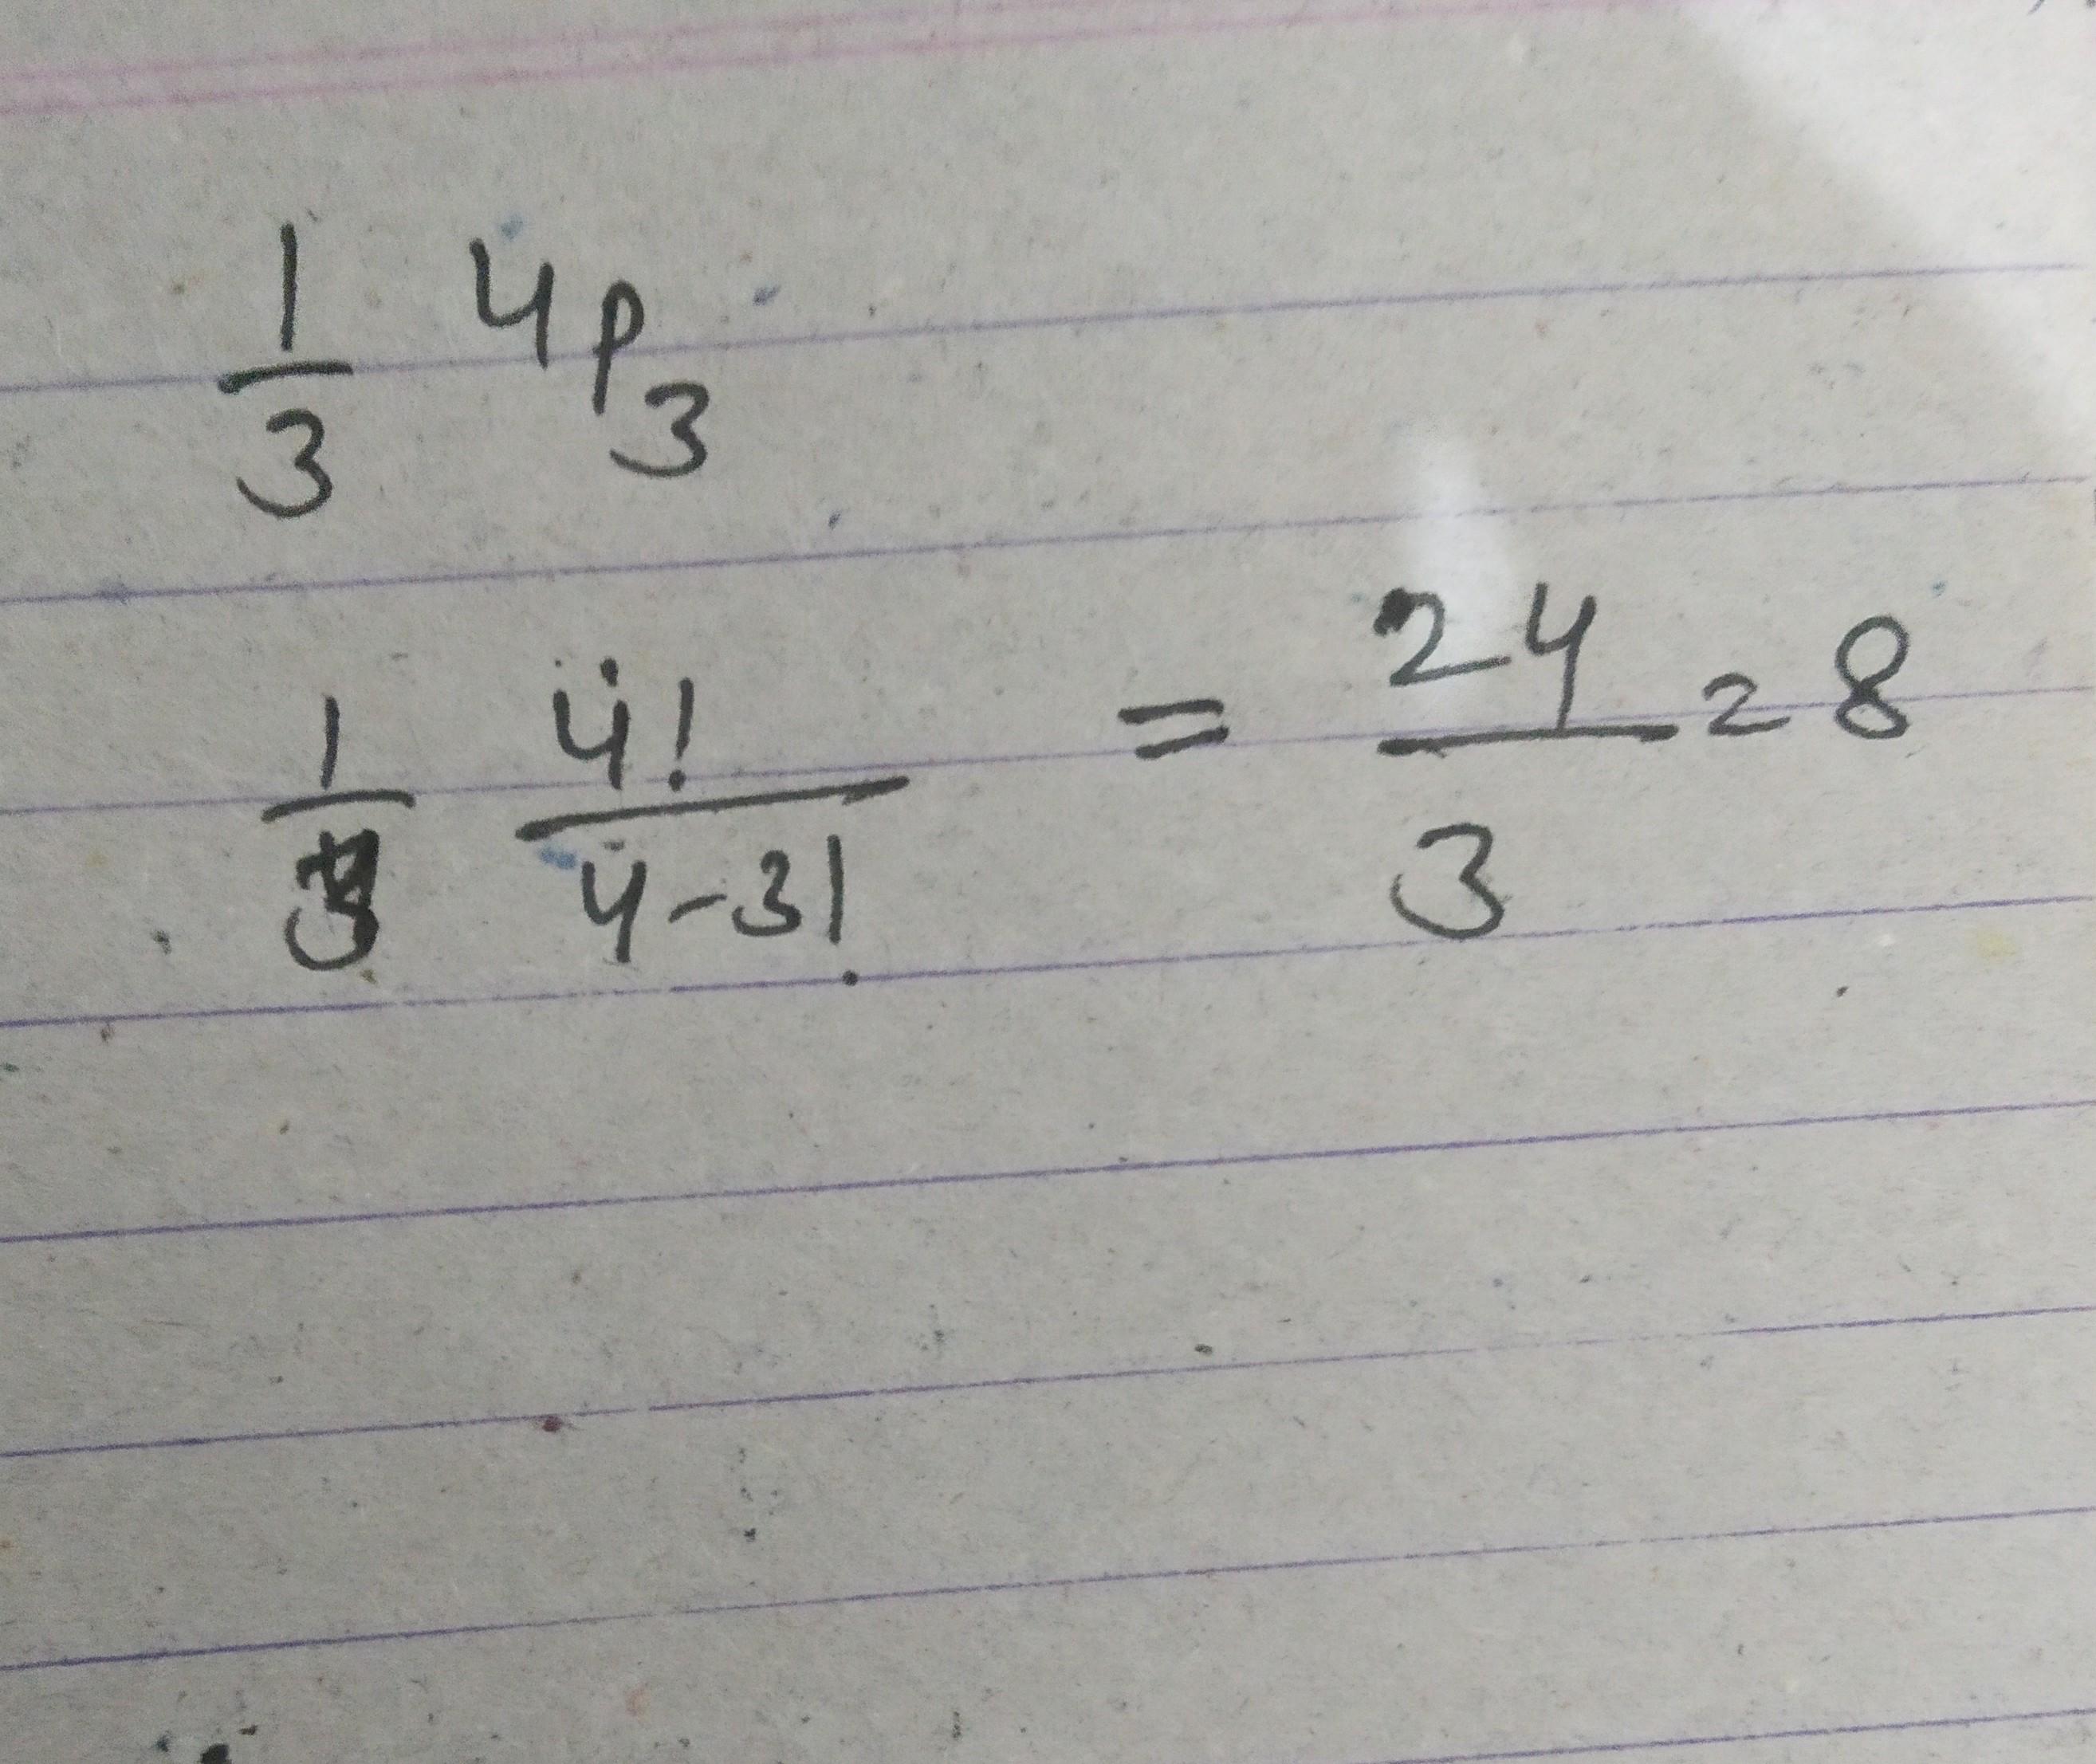 1/3 4p3
1/3 4!/4-3! = 24/3 = 8